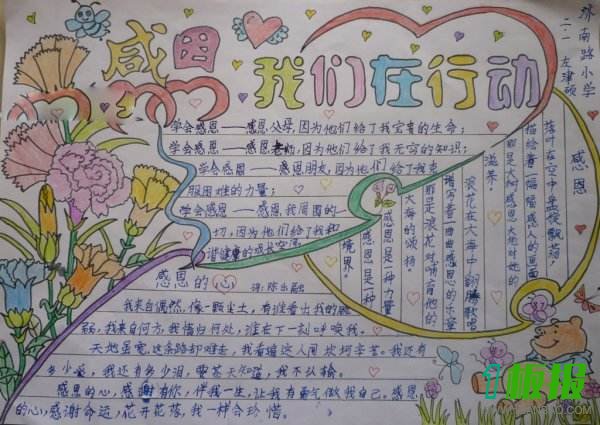 感恩
我们在行动
济南路小学
二·一 左津硕
学会感恩——感恩父母,因为他们给了我宝贵的生命;
学会感恩——感恩老师,因为他们给了我无穷的知识;
学会感恩——感恩朋友,因为他们给了我克
服困难的力量;
学会感恩——感恩我周围的一
切,因为他们给了我和
谐健康的成长空间
感恩
落叶在空中盘旋飘荡,
描绘着一幅幅感人的画面
那是大树感恩大地对她的
滋养。
浪花在大海中翻腾歌唱
谱写着一曲曲感恩的乐章
那是浪花对哺育他的
大海的颂扬。
感恩是一种力量
感恩是一种
境界。
感恩的心
词:陈乐融
我来自偶然,像一颗尘土,有谁看出我的脆
弱,我来自何方,我情归何处,谁在下一刻呼唤我。
天地虽宽,这条路却难走,我看遍这人间坎坷辛苦。我还有
多少爱,我还有多少泪,要苍天知道,我不认输。
感恩的心,感谢有你,伴我一生,让我有勇气做我自己。感恩
的心,感谢命运,花开花落,我一样会珍惜。
板报